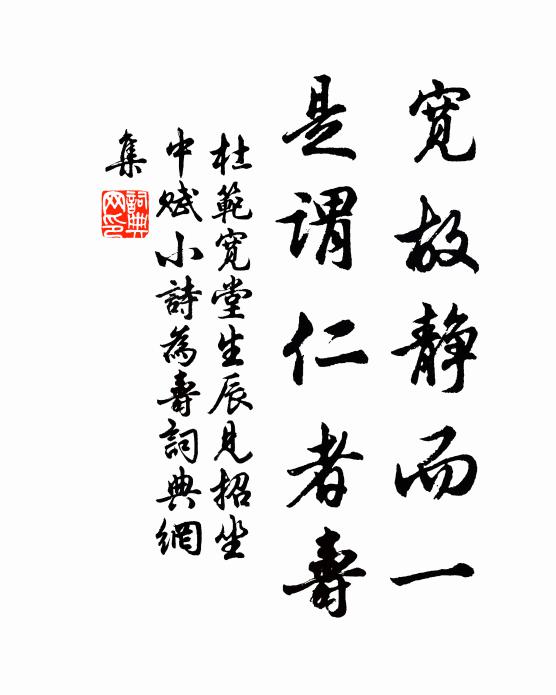 寬故靜而一
是謂仁者壽
杜範寬堂生辰見招坐
中賦小詩為壽詞典網
集
詞典
网印